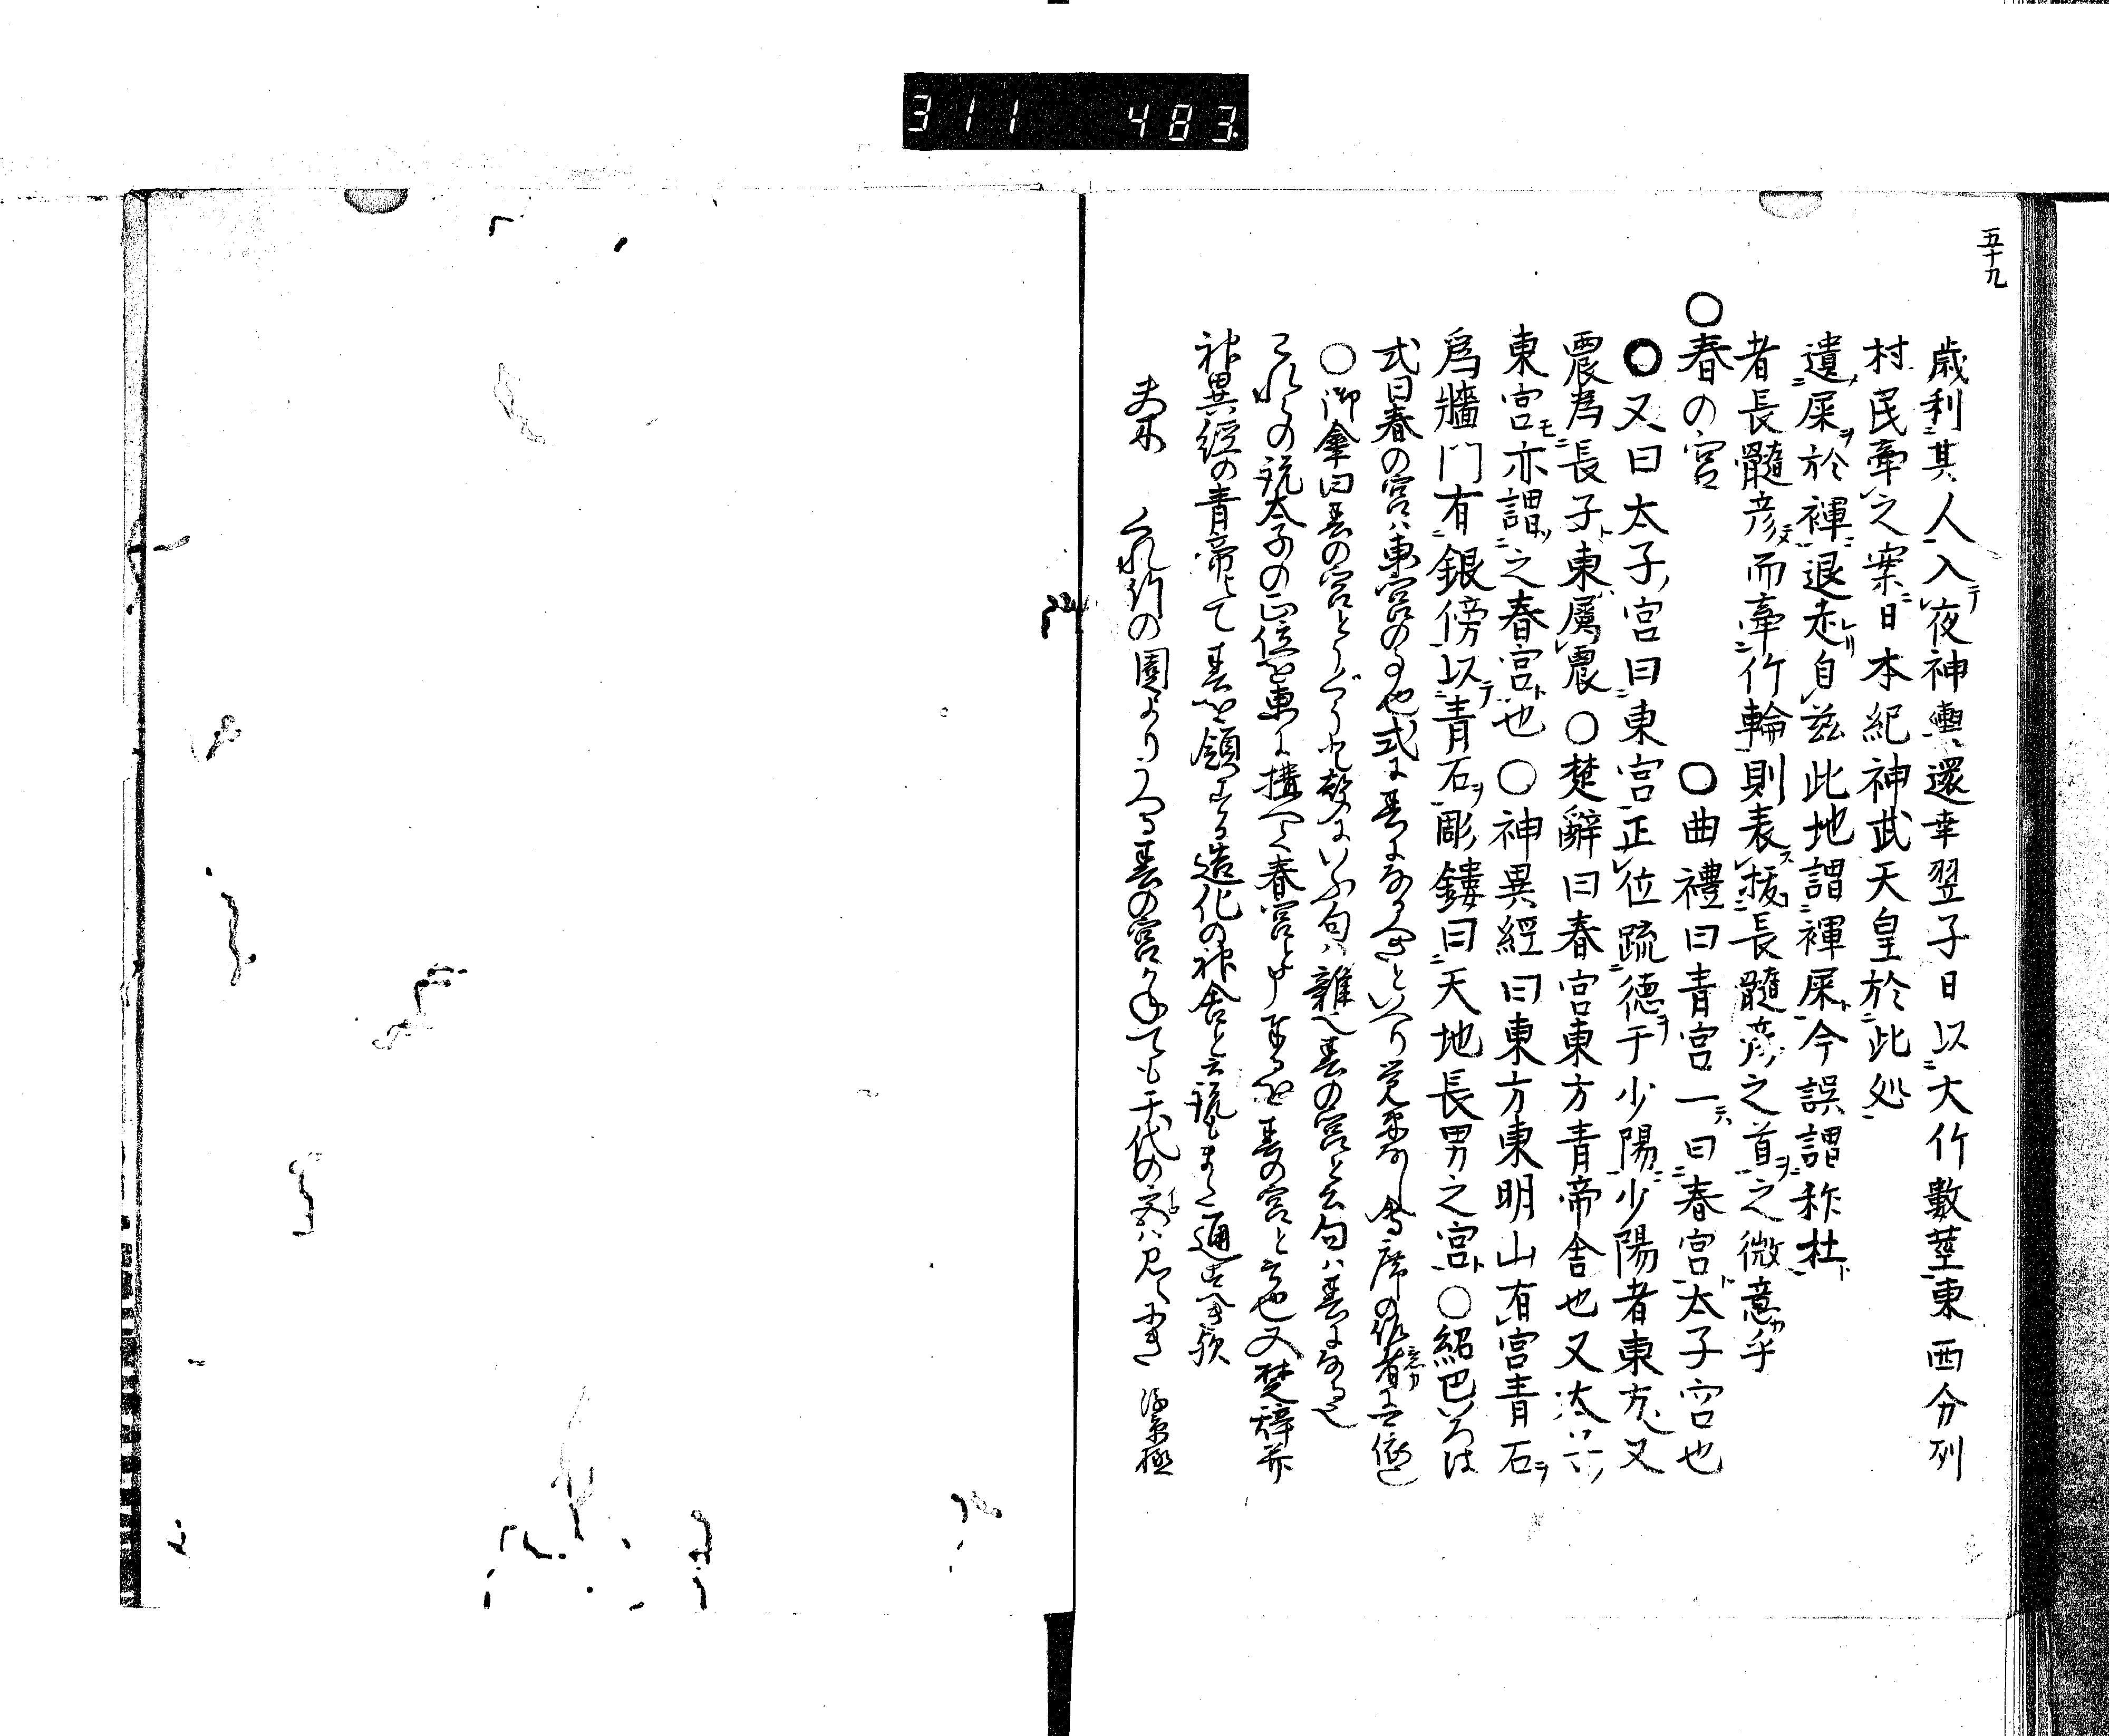 311 483
五十九
歳利其人入夜神輿還幸翌子日以大竹數莖東西分列
村民牽之案日本紀神武天皇於此処
遺屎於褌退走自茲此地謂褌屎今誤謂称杜
者長髓彦而牽竹輪則表抜長髓彦之首之微意乎
○春の宮 ○曲禮曰青宮一曰春宮太子宮也
○又曰太子宮曰東宮正位疏徳于少陽少陽者東方又
震為長子東属震○楚辭曰春宮東方青帝舎也又太子
東宮亦謂之春宮也○神異經曰東方東明山有宮青石
爲牆門有銀傍以青石彫鏤曰天地長男之宮○紹巴いろは
式曰春の宮ハ東宮の事也式に春になるへきといへり
○御傘曰春の宮とハ句ハ雜也春の宮と云句ハ春になる也
これらの説太子の正位を東に搆へて春宮と申奉るを春の宮と云也又楚辞并
神異經の青帝とて春を領する造化の神舎と云説もまた通すへき歟
夫木 くれ竹の園よりうつる春の宮かねても千代の色ハ見えにき